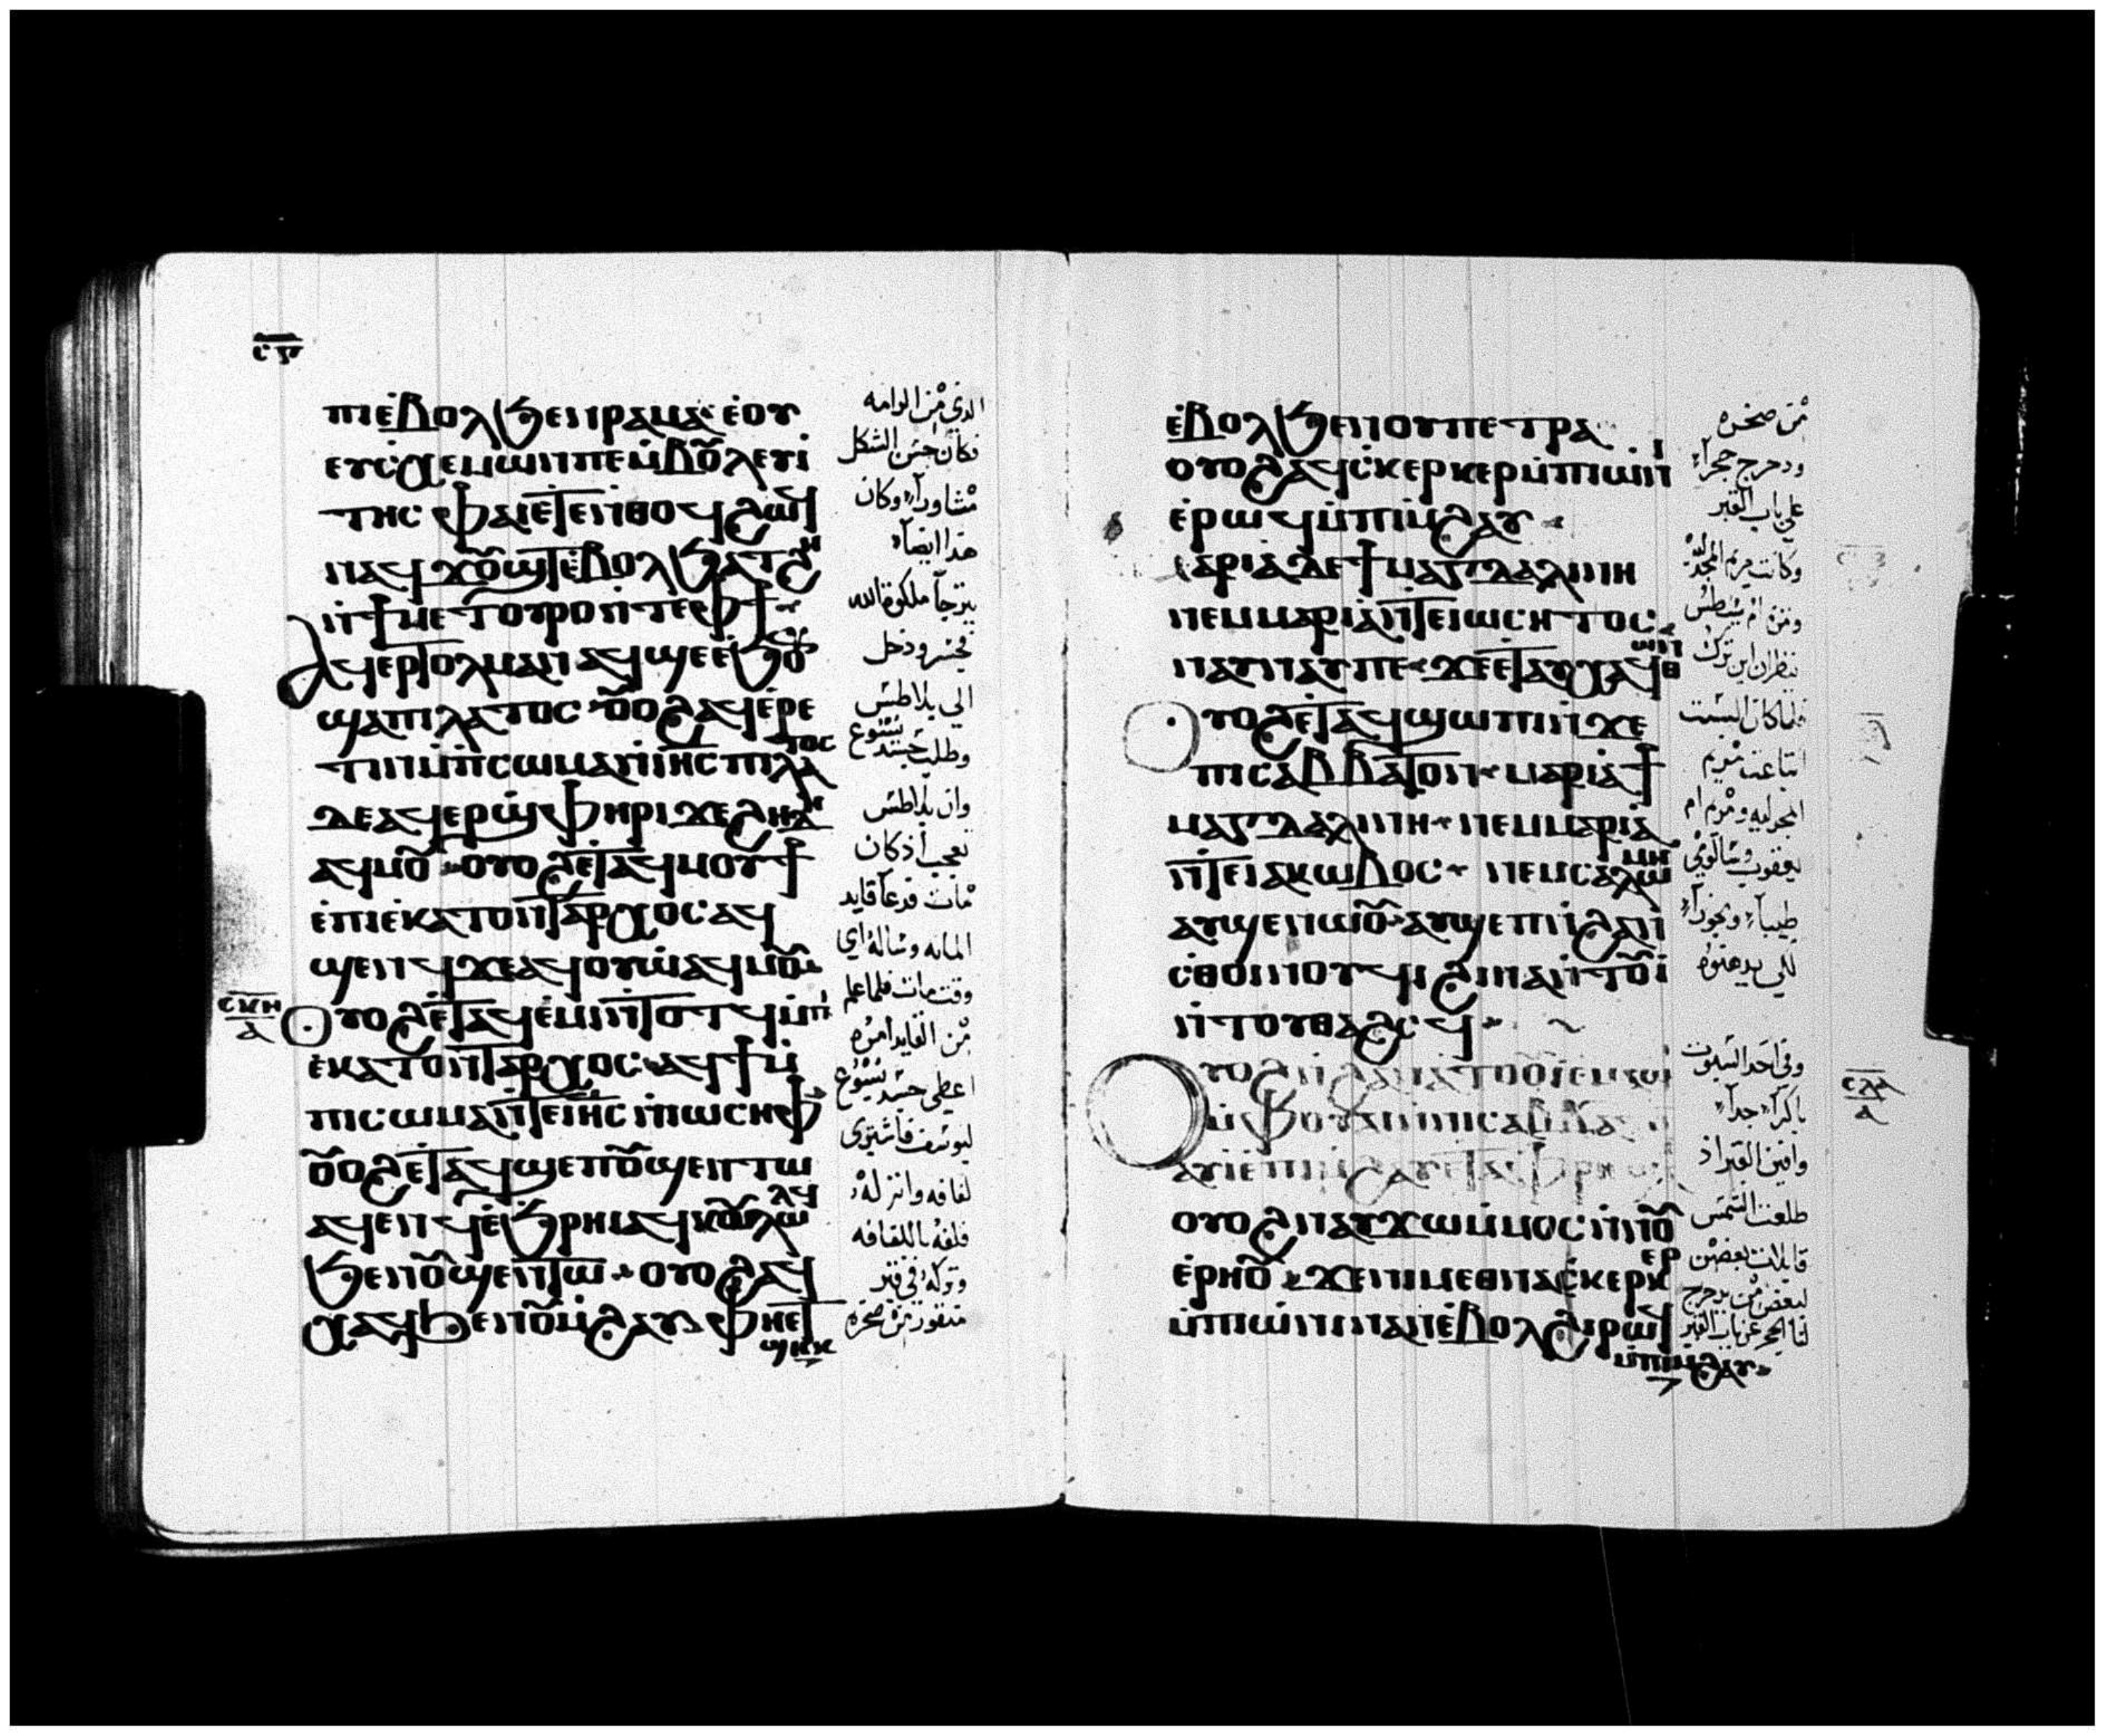 ⲥⲋ
ⲡⲓⲉ̀ⲃⲟⲗϧⲉⲛⲣⲁⲙⲁ ⲉ̀ⲟⲩ
ⲉⲩⲥⲭⲉⲙⲱⲛⲡⲉⲙ̀ⲃⲟⲩⲗⲉⲩⲧⲏⲥ
ⲫⲁⲓⲉⲧⲉⲛⲑⲟϥϩⲱϥ
ⲛⲁϥϫⲟⲩϣⲧⲉ̀ⲃⲟⲗϧⲁⲧϩⲏ
ⲛ̀ϯⲙⲉⲧⲟⲩⲣⲟⲛ̀ⲧⲉⲫϯ
ⲁϥⲉⲣⲧⲟⲗⲙⲁⲛⲁϥϣⲉⲉ̀ϧⲟⲩⲛ
ϣⲁⲡⲓⲗⲁⲧⲟⲥ ⲟⲩⲟϩⲁϥⲉⲣⲉ̀
ⲧⲓⲛⲙ̀ⲡⲥⲱⲙⲁⲛ̀ⲓⲏⲥ ⲡⲓⲗⲁⲧⲟⲥ
ⲇⲉⲁϥⲉⲣϣⲫⲏⲣⲓϫⲉϩⲏⲇⲏ
ⲁϥⲙⲟⲩ ⲟⲩⲟϩⲉⲧⲁϥⲙⲟⲩϯ
ⲉ̀ⲡⲓⲉⲕⲁⲧⲟⲛⲧⲁⲣⲭⲟⲥ ⲁϥ
ϣⲉⲛϥϫⲉⲁϥⲟⲩⲱⲁϥⲙⲟⲩ
ⲥⲕⲏ
ⲁ
ⲟⲩⲟϩⲉⲧⲁϥⲉ̀ⲙⲓⲛ̀ⲧⲟⲧϥⲙ̀ⲡⲓ
ⲉⲕⲁⲧⲟⲛⲧⲁⲣⲭⲟⲥ ⲁϥϯⲙ̀
ⲡⲓⲥⲱⲙⲁⲛ̀ⲧⲉⲓⲏⲥ ⲛ̀ⲓⲱⲥⲏⲫ
ⲟⲩⲟϩⲉⲧⲁϥϣⲉⲡⲟⲩϣⲉⲛⲧⲱ
ⲁϥⲉⲛϥⲉ̀ϧⲣⲏⲓⲁϥⲕⲟⲩⲗⲱⲗϥ
ϧⲉⲛⲟⲩϣⲉⲛⲧⲱ ⲟⲩⲟϩⲁϥ
ⲭⲁϥϧⲉⲛⲟⲩⲙ̀ϩⲁⲩ ⲫⲏⲉⲧ
ϣⲏⲕ
الذي من الرامه
فكان حسن الشكل
مشاورا وكان
هذا ايضا
يترجا ملكوة الله
فجسر ودخل
الي بيلاطس
وطلب جسد يسوع
وان بيلاطس
تعجب اذ كان
مات فدعا قايد
المايه وساله اي
وقت مات فلما علم
من القايد امره
اعطي جسد يسوع
ليوسف فاشتري
لفافه وانزله
فلفه باللفافه
وتركه في قبر
منقور من صخره
ⲉ̀ⲃⲟⲗϧⲉⲛⲟⲩⲡⲉⲧⲣⲁ
ⲟⲩⲟϩⲁϥⲥ̀ⲕⲉⲣⲕⲉⲣⲙ̀ⲡⲓⲱ̀ⲛⲓ
ⲉ̀ⲣⲱϥⲙ̀ⲡⲓⲙ̀ϩⲁⲩ
ⲙⲁⲣⲓⲁⲇⲉϯⲙⲁⲅⲇⲁⲗⲓⲛⲏ
ⲛⲉⲙⲙⲁⲣⲓⲁⲛ̀ⲧⲉⲓⲱⲥⲏⲧⲟⲥ
ⲛⲁⲩⲛⲁⲩⲡⲉ ϫⲉⲉⲧⲁⲩⲭⲁϥⲑⲱⲛ
ⲟⲩⲟϩⲉⲧⲁϥϣⲱⲡⲓⲛ̀ϫⲉ
ⲡⲓⲥⲁⲃⲃⲁⲧⲟⲛ ⲙⲁⲣⲓⲁϯ
ⲙⲁⲅⲇⲁⲗⲓⲛⲏ ⲛⲉⲙⲙⲁⲣⲓⲁ
ⲛ̀ⲧⲉⲓⲁⲕⲱⲃⲟⲥ ⲛⲉⲙⲥⲁⲗⲱⲙⲏ
ⲁⲩϣⲉⲛⲱⲟⲩ ⲁⲩϣⲉⲡⲓϩⲁⲛ
ⲥⲑⲟⲓⲛⲟⲩϥⲓ ϩⲓⲛⲁⲛ̀ⲧⲟⲩⲓ̀
ⲛ̀ⲧⲟⲩⲑⲁϩⲥϥ
ⲥⲗⲁ
ⲁ
ⲁⲩⲓ̀ⲉ̀ⲡⲓⲙ̀ϩⲁⲩ
ⲟⲩⲟϩⲛⲁⲩϫⲱⲙ̀ⲙⲟⲥⲛ̀ⲛⲟⲩ
ⲉ̀ⲣⲏⲟⲩ ϫⲉⲛⲓⲙⲉⲑⲛⲁⲥ̀ⲕⲉⲣⲕⲉⲣ
ⲙ̀ⲡⲓⲱ̀ⲛⲓⲛⲁⲛⲉ̀ⲃⲟⲗϩⲓⲣⲱϥ
ⲙ̀ⲡⲓⲙ̀ϩⲁⲩ
من صخره
ودحرج حجرا
علي باب القبر
وكانت مريم المجدليه
ومريم ام يوسطس
ينظران اين ترك
فلما كان السبت
ابتاعت مريم
المجدليه ومريم ام
يعقوب وسالومي
طيبا وبخورا
لكي يدهنوه
وفي احد السبوت
باكرا جدا
وافين القبر اذ
طلعت الشمس
قايلات بعضهن
لبعض من يدحرج
لنا الحجر عن باب القبر